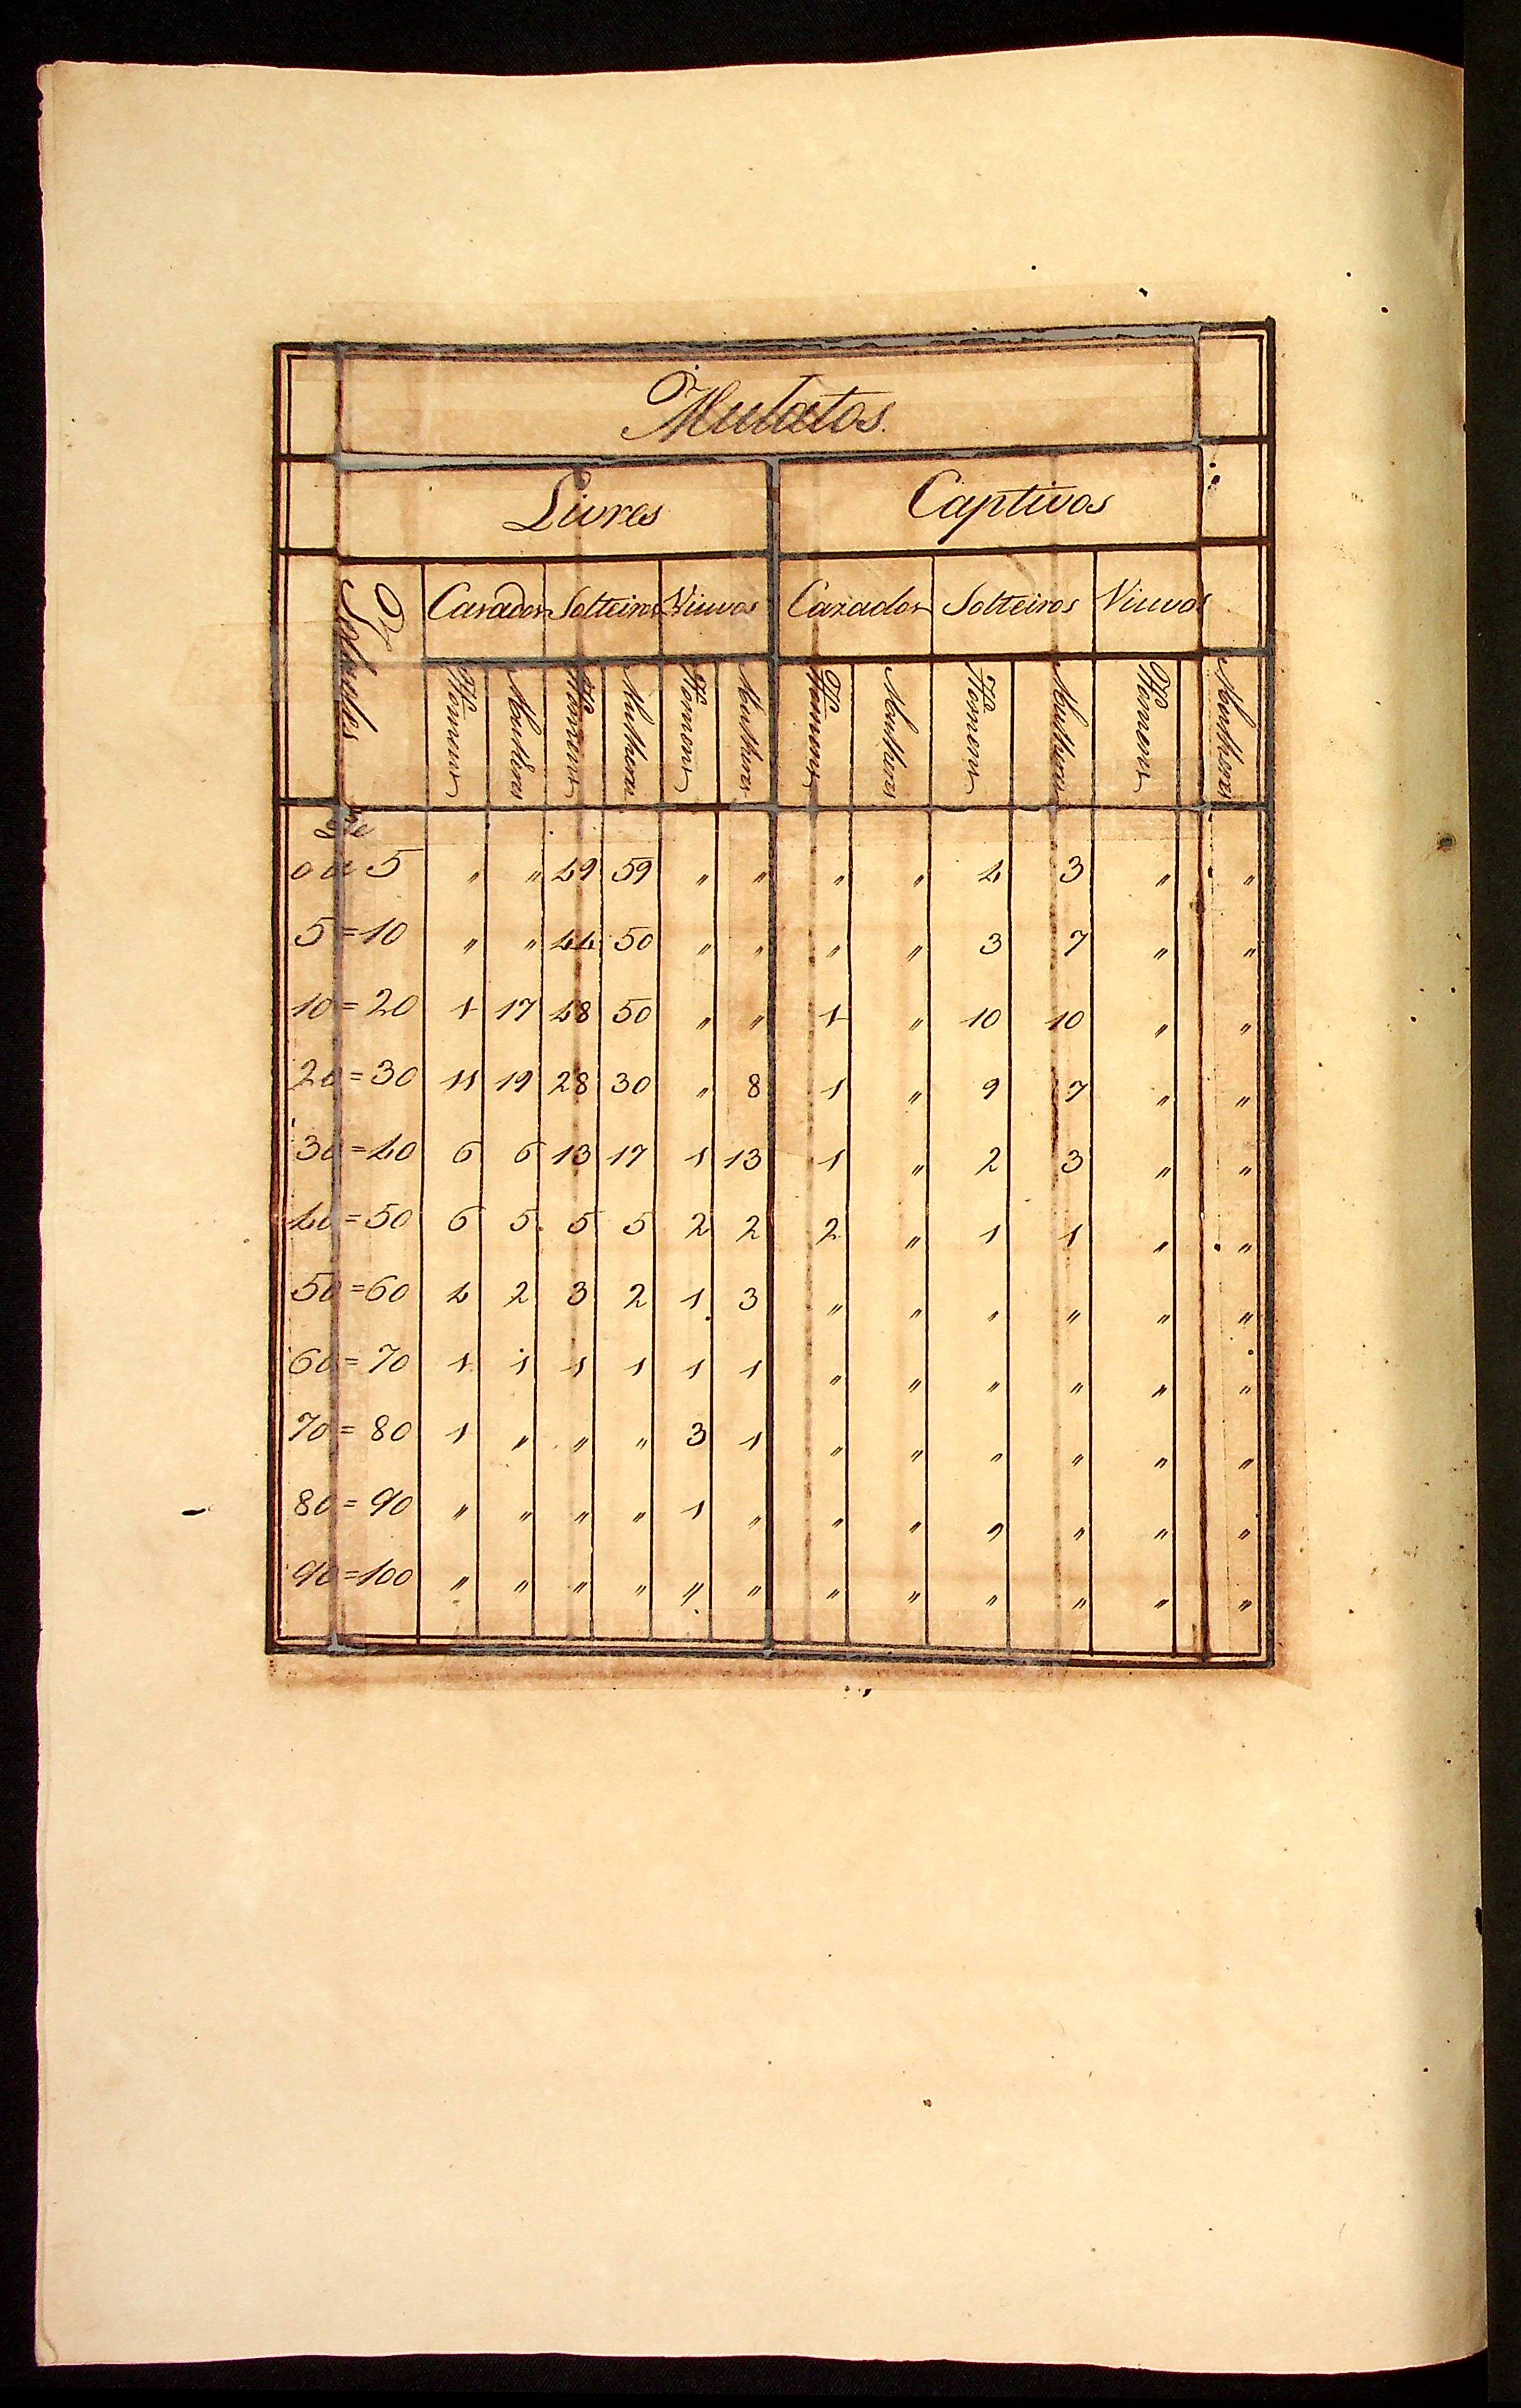 Mulatos.
Livres Captivos
Cazados Solteiros Viuvos Cazados Solteiros Viuvos
Homens Mulheres Homens Mulheres Homens Mulheres Homens Mulheres Homens Mulheres Homens Mulheres
De
0 a 5 " " 49 59 " " " " 4 3 " "
5 = 10 " " 44 50 " " " " 3 7 " "
10 = 20 1 17 48 50 " " 1 " 10 10 " "
20 = 30 11 19 28 30 " 8 1 " 9 7 " "
30 = 40 6 6 13 17 1 13 1 " 2 3 " "
40 = 50 6 5 5 5 2 2 2 " 1 1 " "
50 = 60 4 2 3 2 1 3 " " " " " "
60 = 70 1 1 1 1 1 1 " " " " " "
70 = 80 1 " " " 3 1 " " " " " "
80 = 90 " " " " 1 " " " " " " "
90 = 100 " " " " " " " " " " " "